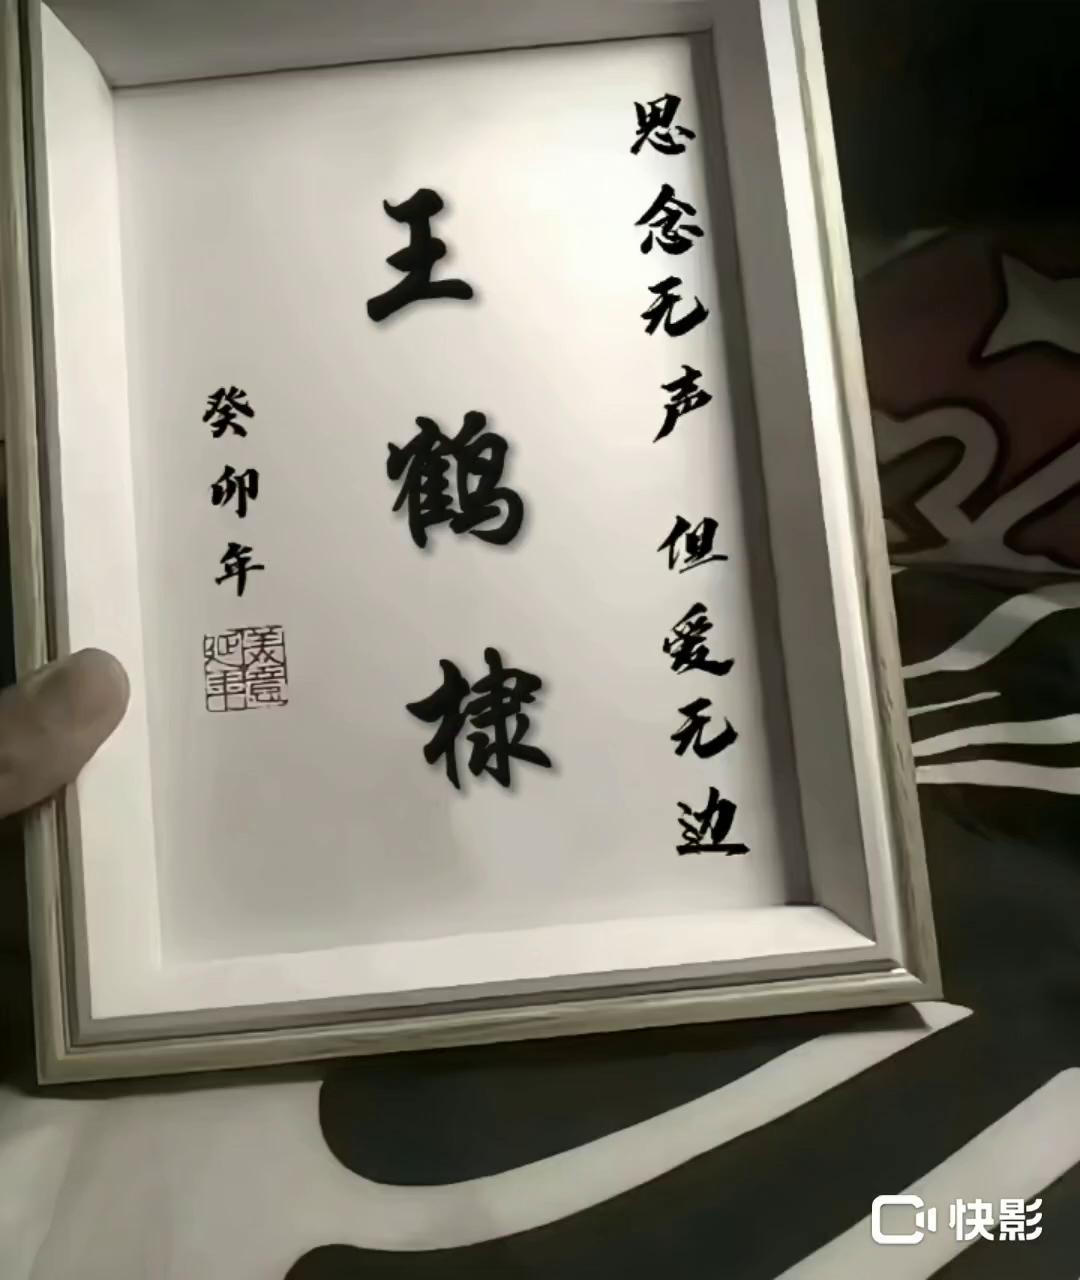 思念无声 但爱无边
王鹤棣
癸卯年
美意
延年
快影